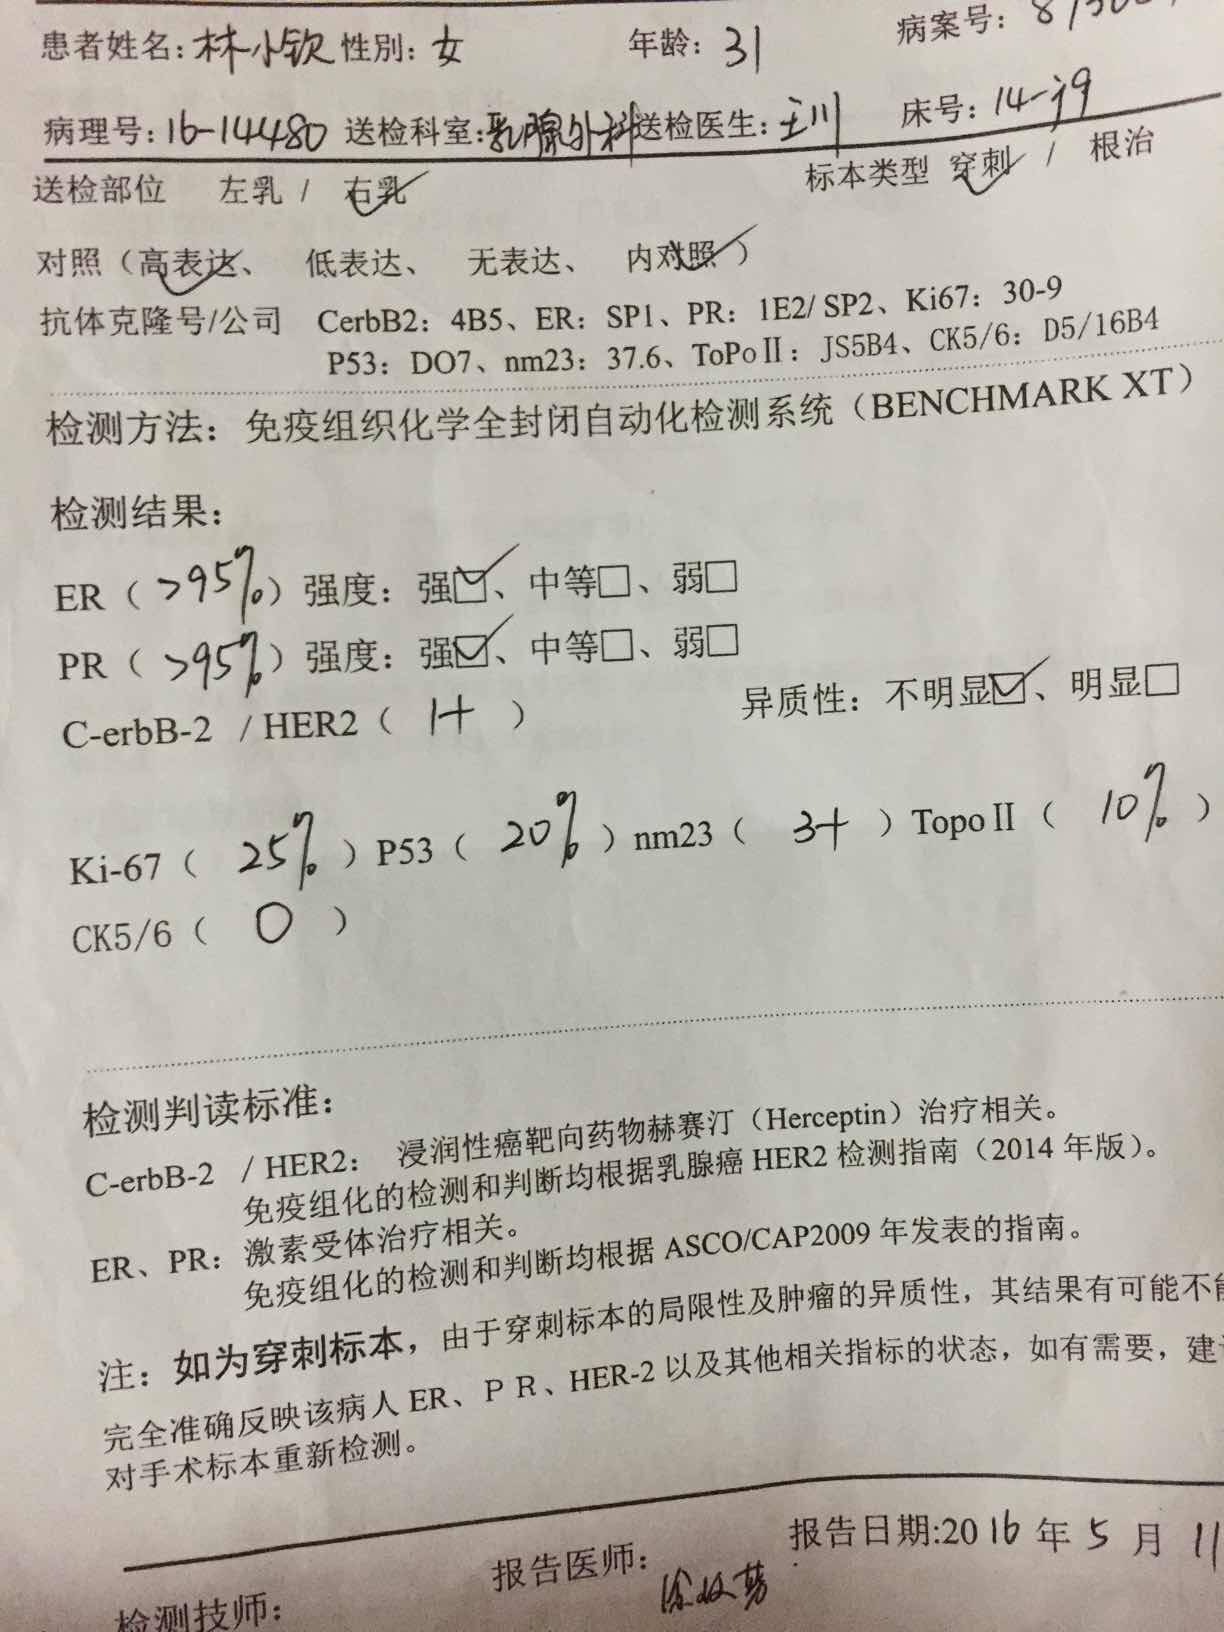 患者姓名：林小钦 性别：女 年龄：31 病案号：
病理号：16-14480 送检科室：乳腺外科 送检医生：王川 床号：14-j9
送检部位 左乳 / 右乳✓ 标本类型 穿刺✓ / 根治
对照（高表达✓、 低表达、 无表达、 内对照✓）
抗体克隆号/公司 CerbB2：4B5、ER：SP1、PR：1E2/ SP2、Ki67：30-9
P53：DO7、nm23：37.6、ToPoⅡ：JS5B4、CK5/6：D5/16B4
检测方法：免疫组织化学全封闭自动化检测系统（BENCHMARK XT）
检测结果：
ER（>95%）强度：强☑、中等□、弱□
PR（>95%）强度：强☑、中等□、弱□
C-erbB-2 / HER2（ 1+ ） 异质性：不明显☑、明显□
Ki-67（ 25% ）P53（ 20% ）nm23（ 3+ ）TopoⅡ（ 10% ）
CK5/6（ 0 ）
检测判读标准：
C-erbB-2 / HER2： 浸润性癌靶向药物赫赛汀（Herceptin）治疗相关。
免疫组化的检测和判断均根据乳腺癌 HER2 检测指南（2014 年版）。
ER、PR：激素受体治疗相关。
免疫组化的检测和判断均根据 ASCO/CAP2009 年发表的指南。
注：如为穿刺标本，由于穿刺标本的局限性及肿瘤的异质性，其结果有可能不能
完全准确反映该病人 ER、ＰＲ、HER-2 以及其他相关指标的状态，如有需要，建议
对手术标本重新检测。
报告日期:2016 年 5 月 11
报告医师：
检测技师：